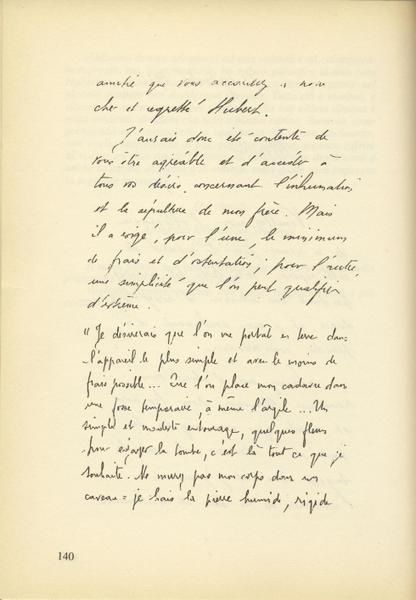 amitié que vous accordiez à notre
cher et regretté Hubert.
J'aurais donc été contente de
vous être agréable et d'accéder à
tous vos désirs concernant l'inhumation
et la sépulture de mon frère. Mais
il a exigé, pour l'une, le minimum
de frais et d'ostentation; pour l'autre,
une simplicité que l'on peut qualifier
d'extrême.
"Je désirerais que l'on me portât en terre dans
l'appareil le plus simple et avec le moins de
frais possible... Que l'on place mon cadavre dans
une fosse temporaire, à même l'argile... Un
simple et modeste entourage, quelques fleurs
pour égayer la tombe, c'est là tout ce que je
souhaite. Ne murez pas mon corps dans un
caveau = je hais la pierre humide, rigide
140